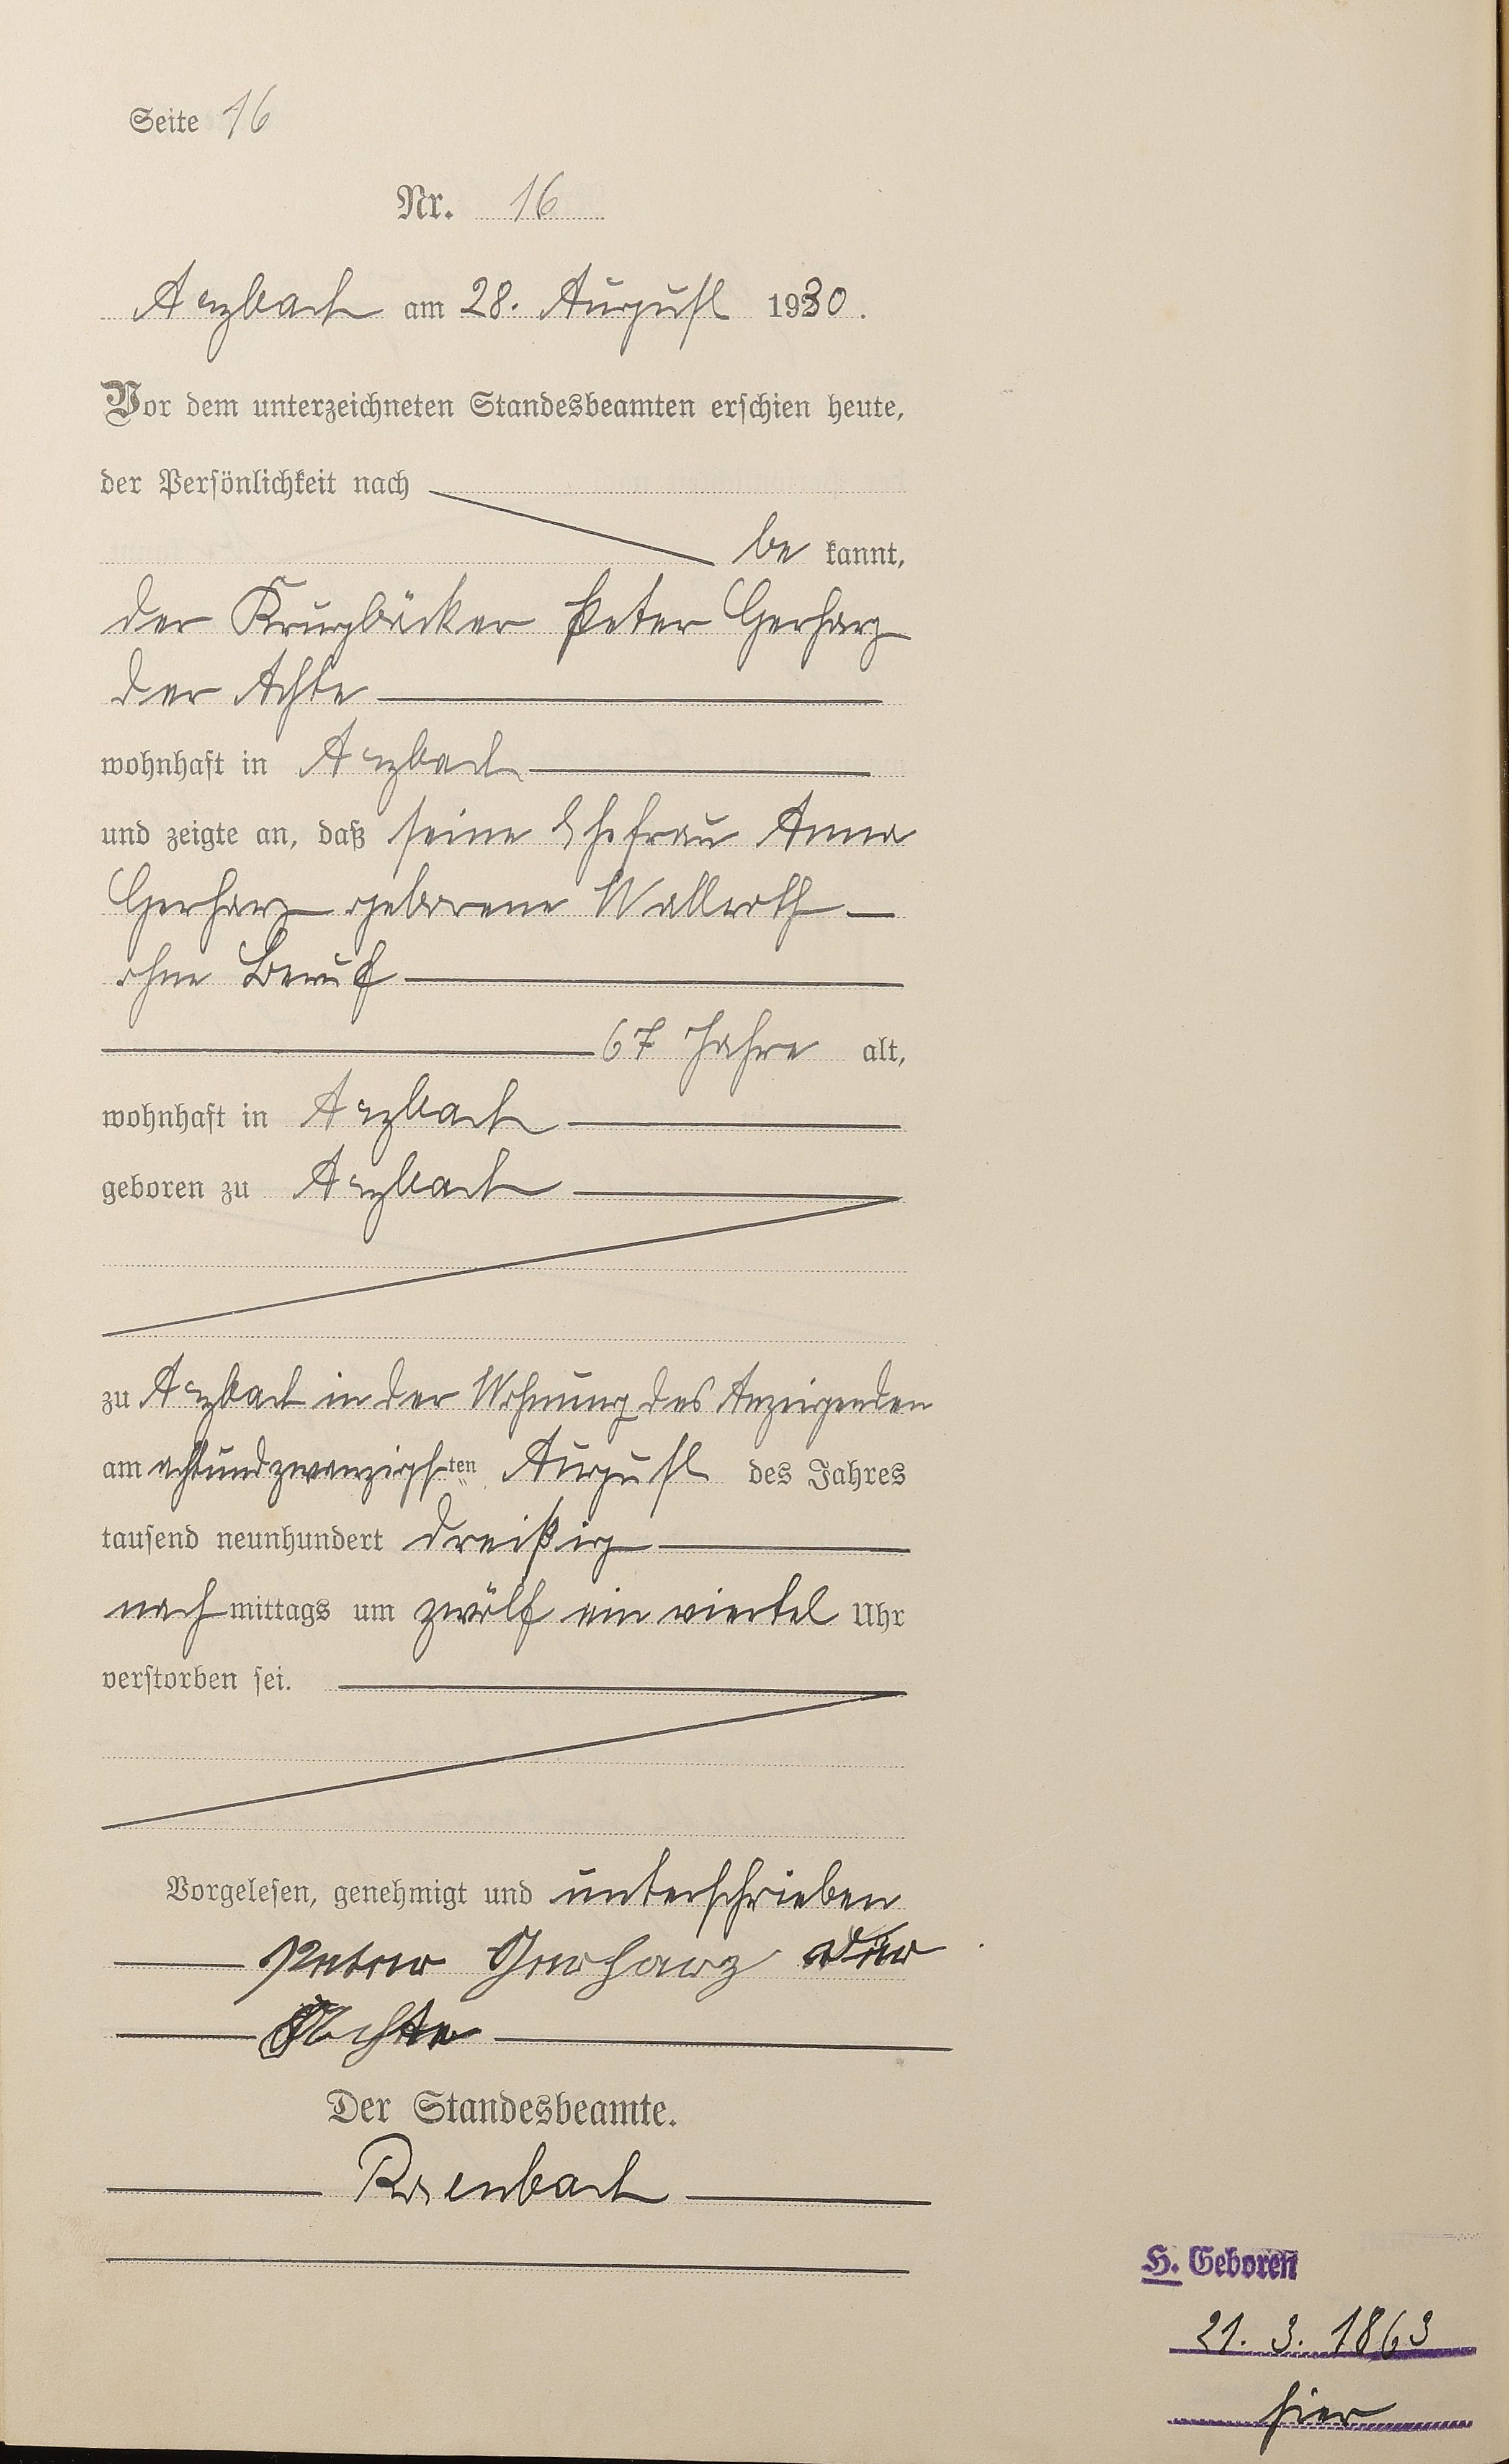 Seite 16
Nr. 16
Arzbach am 28. August 1930.
Vor dem unterzeichneten Standesbeamten erschien heute,
der Persönlichkeit nach
be kannt,
der Krugbäcker Peter Gerharz
der Achte
wohnhaft in Arzbach
und zeigte an, daß seine Ehefrau Anna
Gerharz geborene Wallroth
ohne Beruf
67 Jahre alt,
wohnhaft in Arzbach
geboren zu Arzbach
zu Arzbach in der Wohnung des Anzeigenden
am achtundzwanzigsten August des Jahres
tausend neunhundert dreißig
nachmittags um zwölf ein viertel Uhr
verstorben sei.
Vorgelesen, genehmigt und unterschrieben
Peter Gerharz der
Achte
Der Standesbeamte.
Rosenbach
H. Geboren
21. 3. 1863
hier